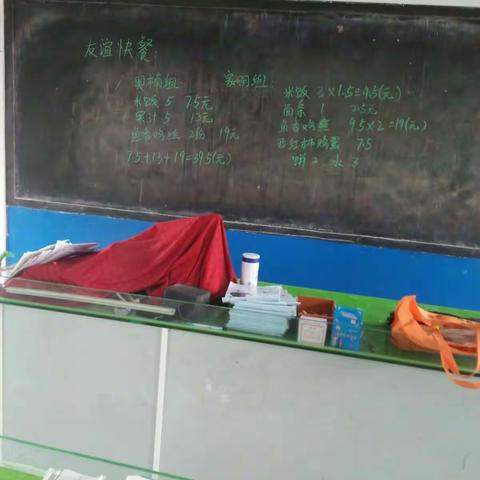 友谊快餐:
奥楠组
米饭 5 7.5元
累计 5 13元
鱼香鸡丝 2份 19元
7.5+13+19=39.5(元)
家明组
米饭 3×1.5=4.5(元)
面条 1 2.5元
鱼香鸡丝 9.5×2=19(元)
西红柿鸡蛋 7.5
饼 2 水 3